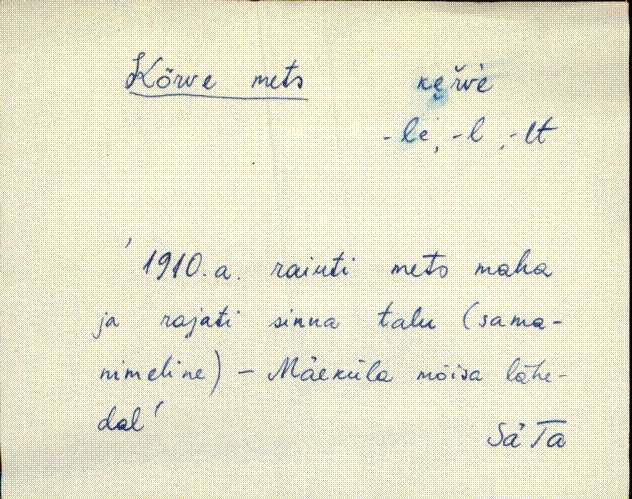 Kõrve mets keřve
-le, -l, -lt
'1910.a. raiuti mets maha
ja rajati sinna talu (sama-
nimeline) – Mäeküla mõisa lähe-
dal'
Sä Ta